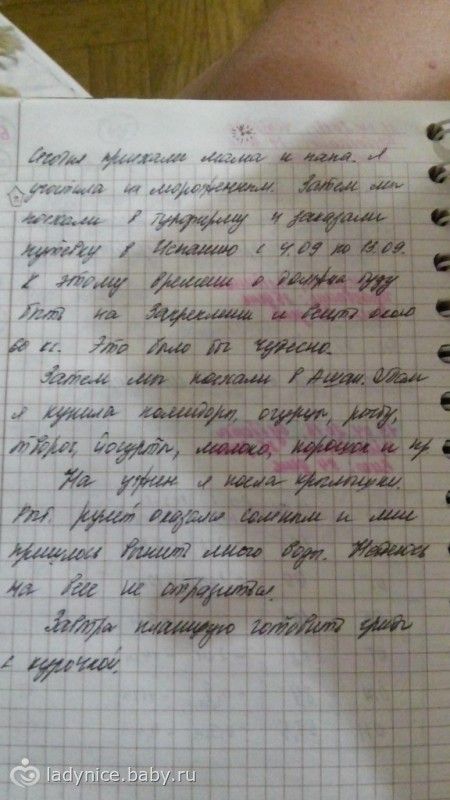 Сегодня приехали мама и папа. Я
угостила их мороженным. Затем мы
поехали в турфирму и заказали
путевку в Испанию с 4.09 по 13.09.
К этому времени я должна буду
быть на Закреплении и весить около
60 кг. Это было бы чудесно.
Затем мы поехали в Ашан. Там
я купила помидоры, огурцы, рыбу,
творог, йогурты, молоко, порошок и пр
На ужин я поела крылышки.
рулет оказался солёным и мне
пришлось выпить много воды. Надеюсь
на весе не отразится.
Завтра планирую готовить грибы
с курочкой.
ladynice.baby.ru